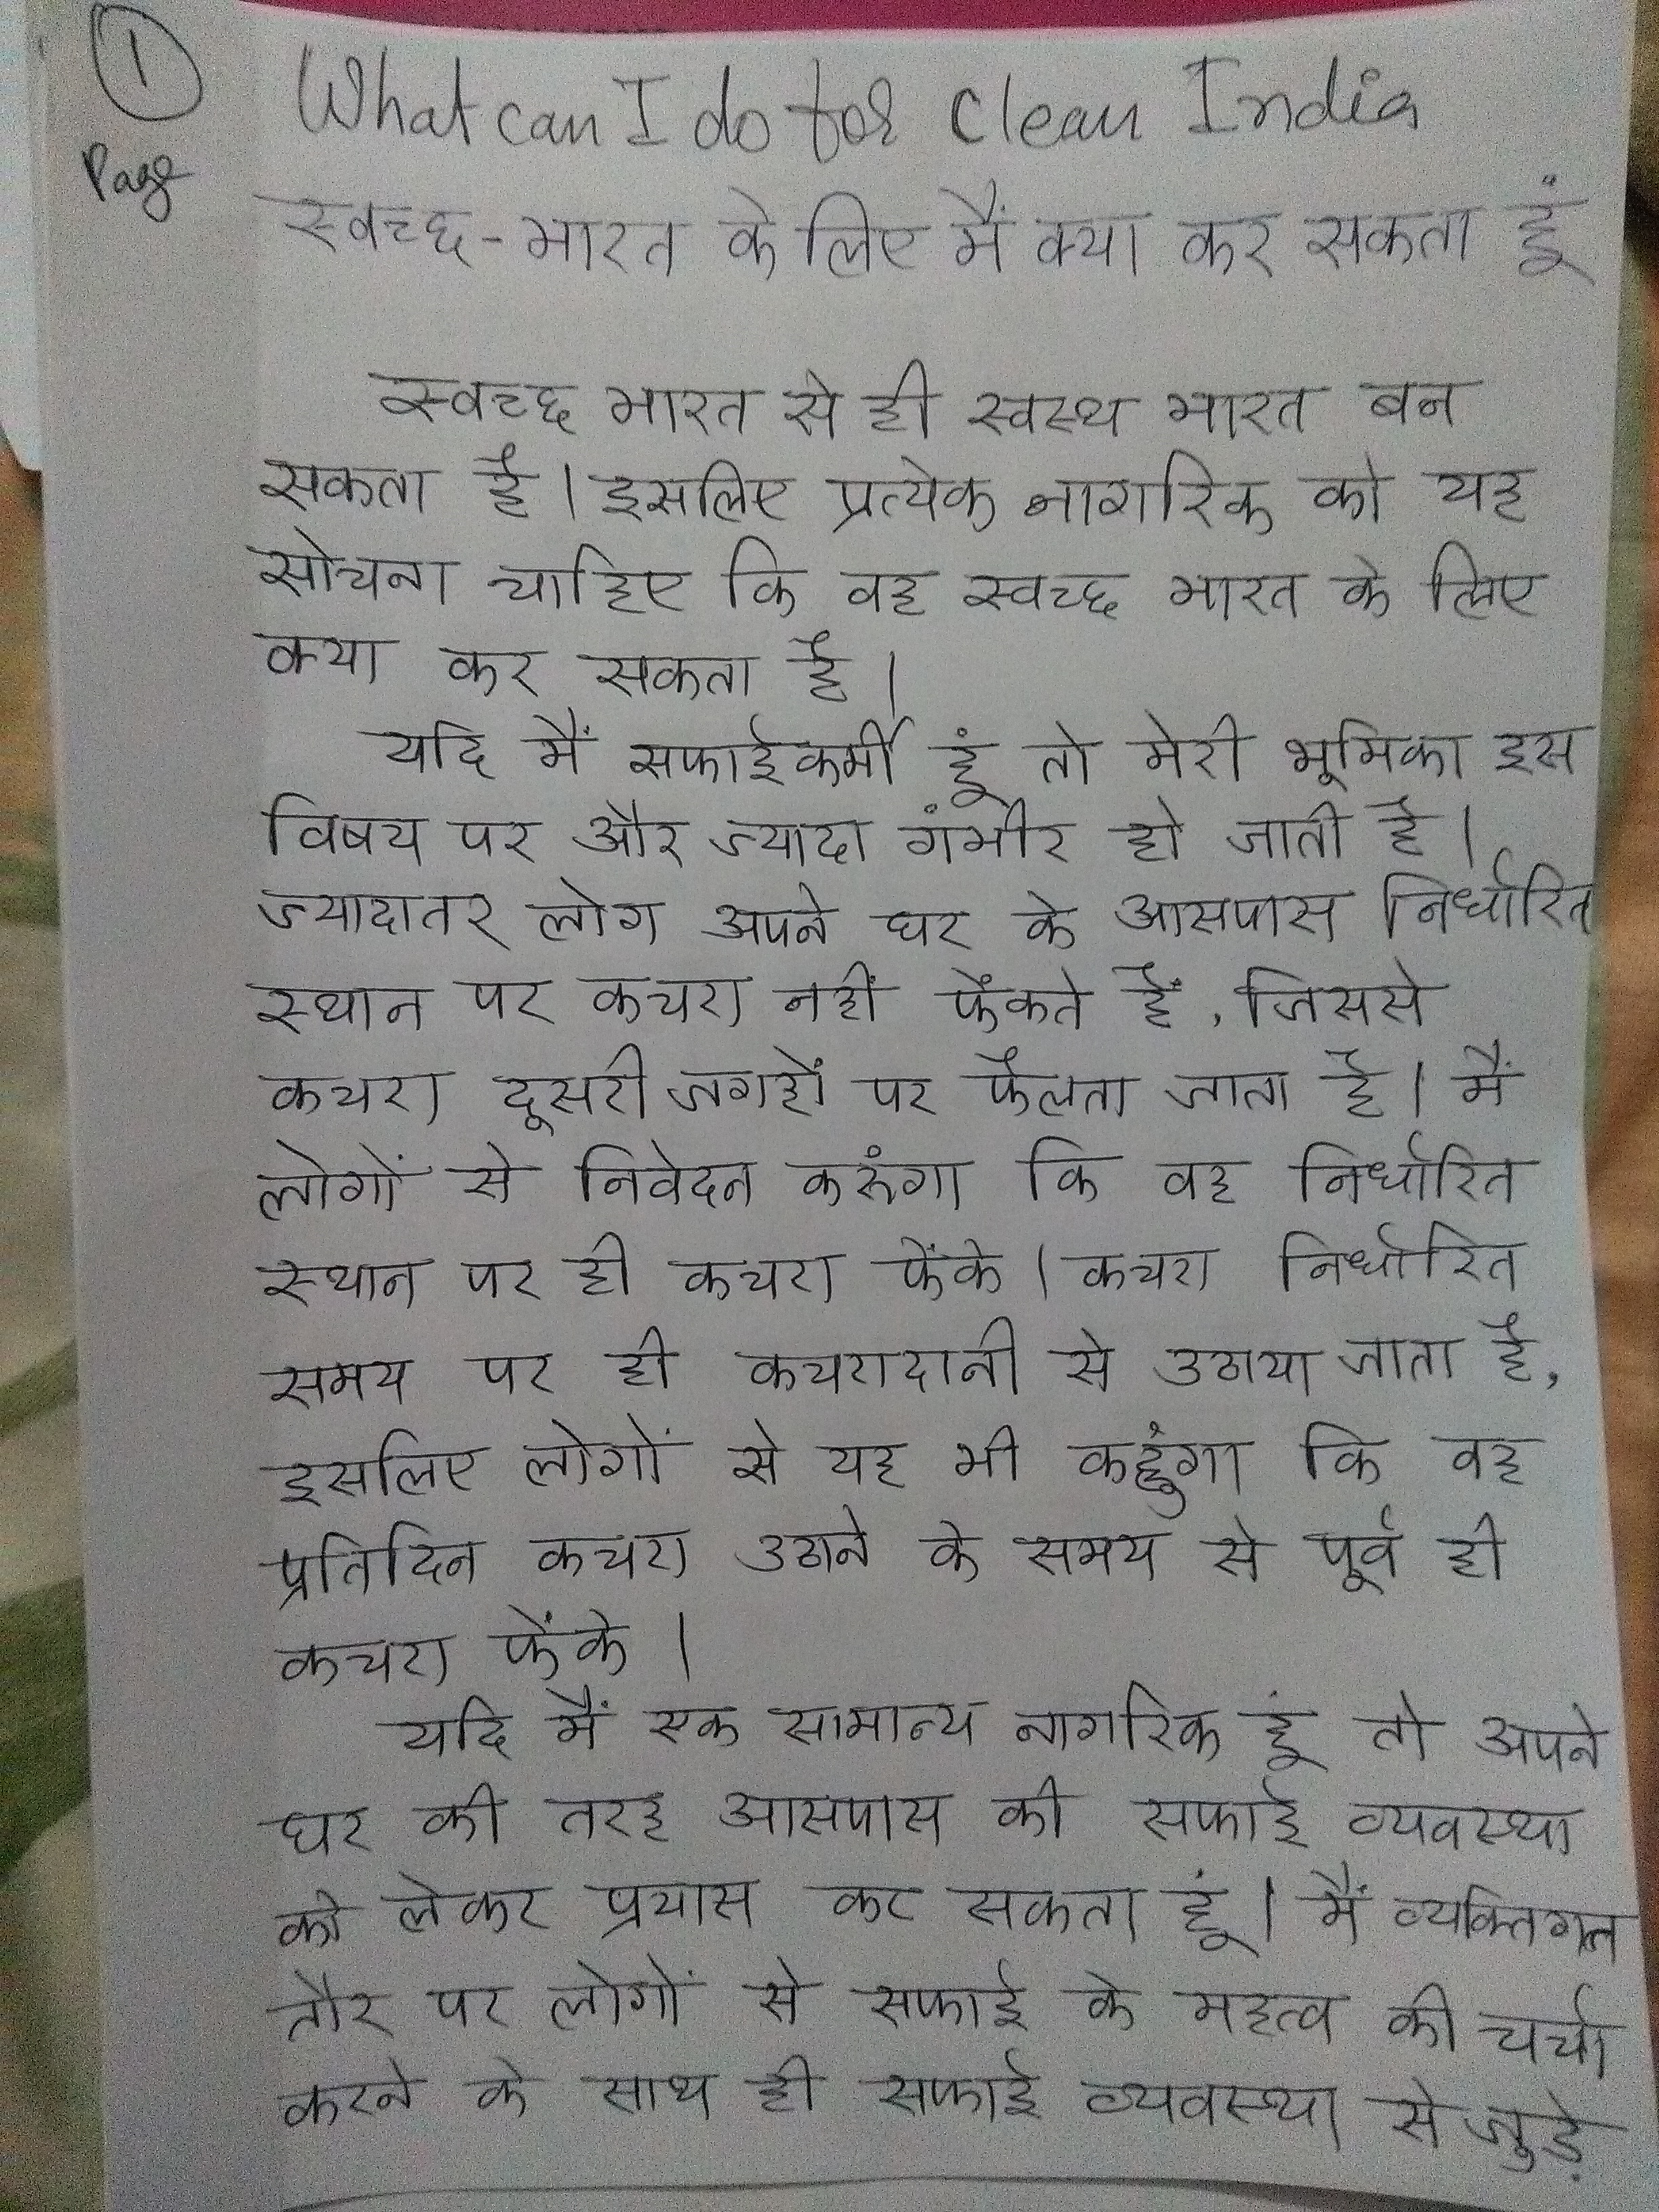 1
Page
What can I do for Clean India
स्वच्छ-भारत के लिए मैं क्या कर सकता हूं
स्वच्छ भारत से ही स्वस्थ भारत बन
सकता है। इसलिए प्रत्येक नागरिक को यह
सोचना चाहिए कि वह स्वच्छ भारत के लिए
क्या कर सकता है।
यदि मैं सफाईकर्मी हूं तो मेरी भूमिका इस
विषय पर और ज्यादा गंभीर हो जाती है।
ज्यादातर लोग अपने घर के आसपास निर्धारित
स्थान पर कचरा नहीं फेंकते हैं, जिससे
कचरा दूसरी जगहों पर फैलता जाता है। मैं
लोगों से निवेदन करूंगा कि वह निर्धारित
स्थान पर ही कचरा फेंके। कचरा निर्धारित
समय पर ही कचरादानी से उठाया जाता है,
इसलिए लोगों से यह भी कहूंगा कि वह
प्रतिदिन कचरा उठाने के समय से पूर्व ही
कचरा फेंके।
यदि मैं एक सामान्य नागरिक हूं तो अपने
घर की तरह आसपास की सफाई व्यवस्था
को लेकर प्रयास कर सकता हूं। मैं व्यक्तिगत
तौर पर लोगों से सफाई के महत्व की चर्चा
करने के साथ ही सफाई व्यवस्था से जुड़े